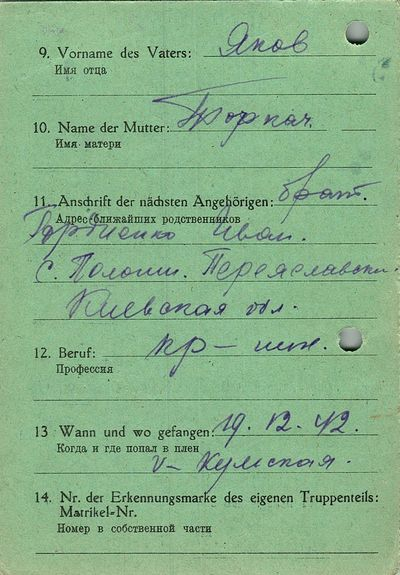 9. Vorname des Vaters: Яков
Имя отца
10. Name der Mutter: Торкач.
Имя матери
11. Anschrift der nächsten Angehörigen: брат.
Адрес ближайших родственников
Иван.
с. Пологи. Переяславски
Киевская обл.
12. Beruf: кр-
Профессия
13 Wann und wo gefangen: 19. 12. 42
Когда и где попал в плен
Кумская.
14. Nr. der Erkennungsmarke des eigenen Truppenteils:
Matrikel-Nr.
Номер в собственной части